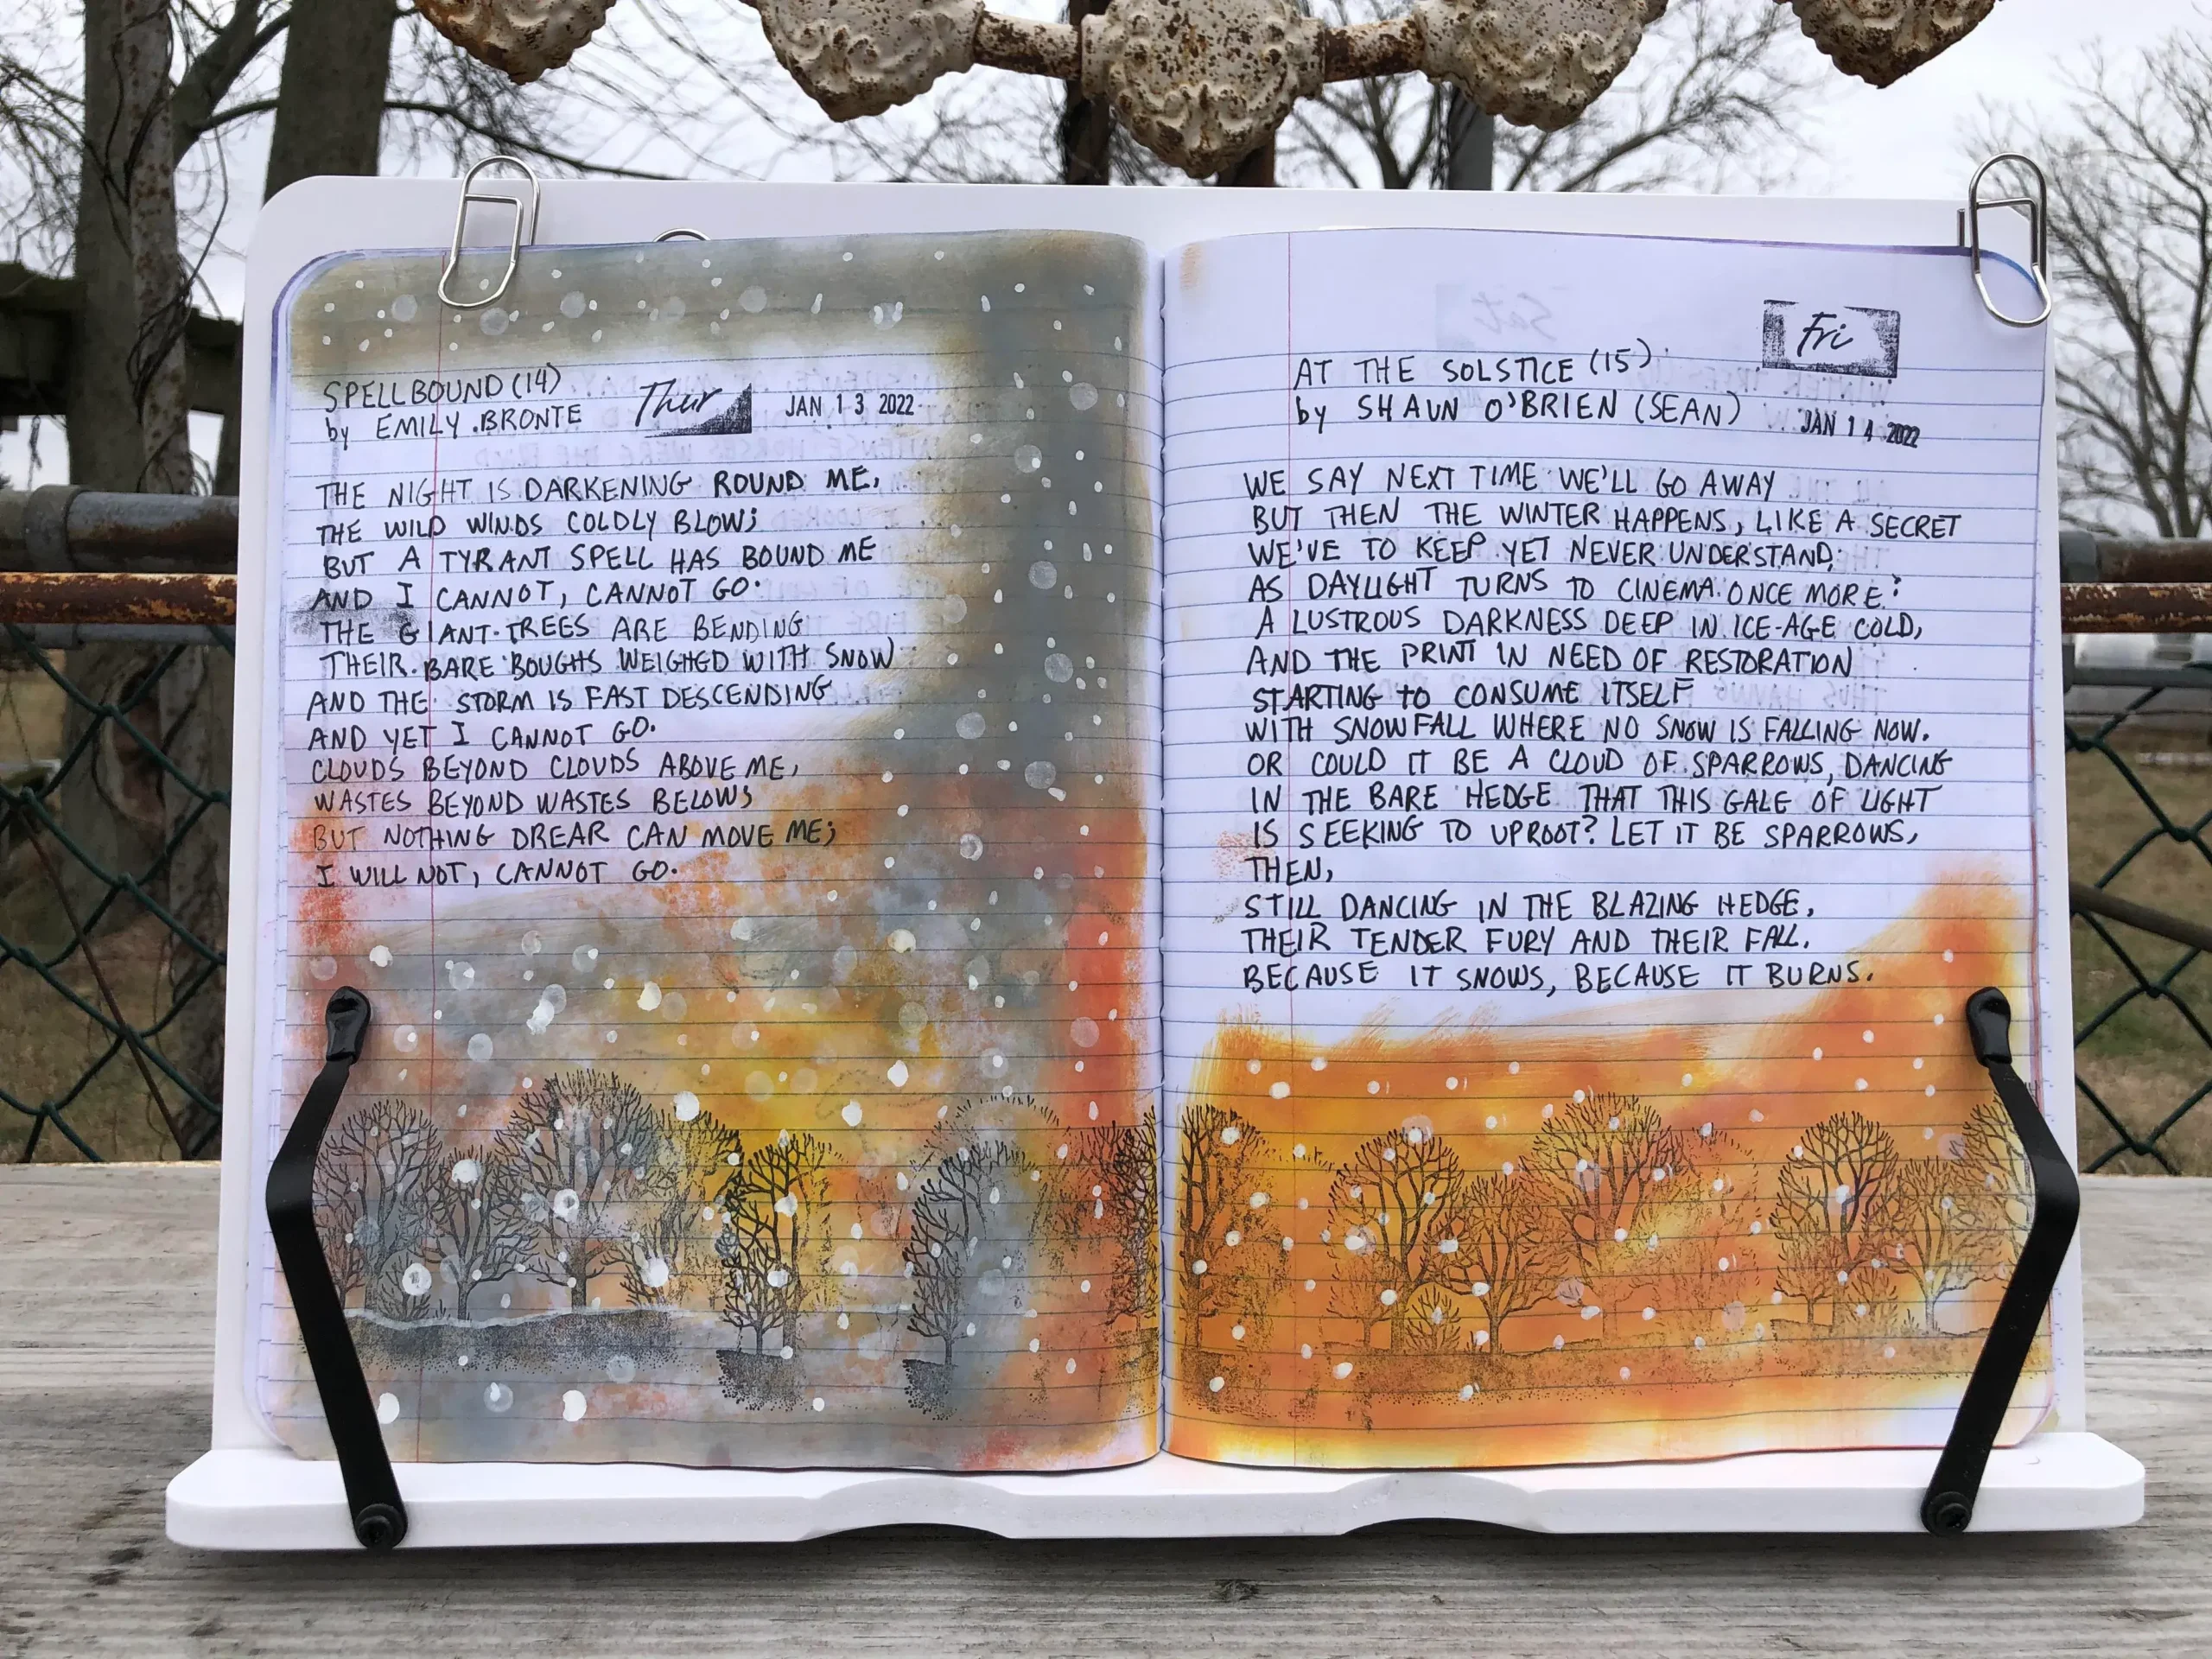 SPELLBOUND (14)
by EMILY BRONTE
Thur
JAN 13 2022
THE NIGHT IS DARKENING ROUND ME,
THE WILD WINDS COLDLY BLOW;
BUT A TYRANT SPELL HAS BOUND ME
AND I CANNOT, CANNOT GO.
THE GIANT TREES ARE BENDING
THEIR BARE BOUGHS WEIGHED WITH SNOW
AND THE STORM IS FAST DESCENDING
AND YET I CANNOT GO.
CLOUDS BEYOND CLOUDS ABOVE ME,
WASTES BEYOND WASTES BELOW;
BUT NOTHING DREAR CAN MOVE ME;
I WILL NOT, CANNOT GO.
Fri
AT THE SOLSTICE (15)
by SHAUN O'BRIEN (SEAN)
JAN 14 2022
WE SAY NEXT TIME WE'LL GO AWAY
BUT THEN THE WINTER HAPPENS, LIKE A SECRET
WE'VE TO KEEP YET NEVER UNDERSTAND;
AS DAYLIGHT TURNS TO CINEMA ONCE MORE:
A LUSTROUS DARKNESS DEEP IN ICE-AGE COLD,
AND THE PRINT IN NEED OF RESTORATION
STARTING TO CONSUME ITSELF
WITH SNOWFALL WHERE NO SNOW IS FALLING NOW.
OR COULD IT BE A CLOUD OF SPARROWS, DANCING
IN THE BARE HEDGE THAT THIS GALE OF LIGHT
IS SEEKING TO UPROOT? LET IT BE SPARROWS,
THEN,
STILL DANCING IN THE BLAZING HEDGE,
THEIR TENDER FURY AND THEIR FALL.
BECAUSE IT SNOWS, BECAUSE IT BURNS.